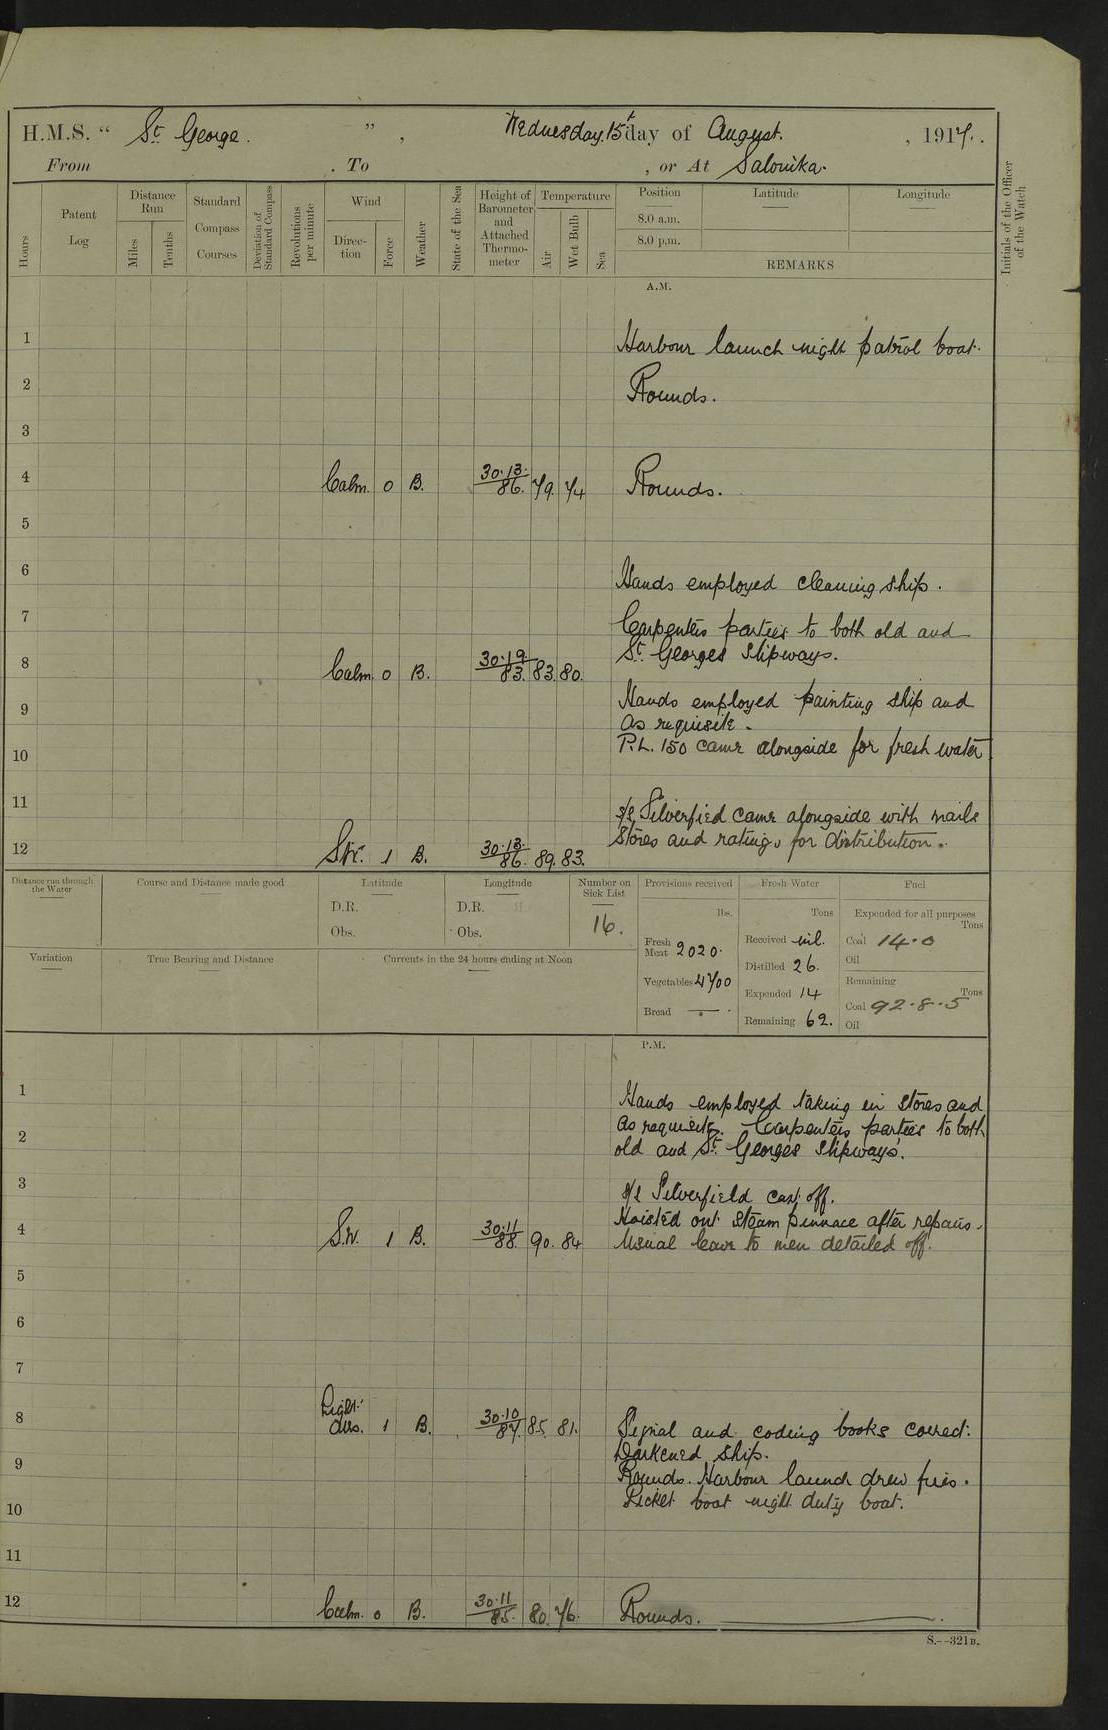 H.M.S. “ St. George. ” , Wednesday. 15th day of August. , 1917.
From . To , or At Salonika.
Hours
Patent Log
Distance Run
Miles
Tenths
Standard Compass Courses
Deviation of Standard Compass
Revolutions per minute
Wind
Direc-tion
Force
Weather
State of the Sea
Height of Barometer and Attached Thermo-meter
Temperature
Air
Wet Bulb
Sea
Position
8.0 a.m.
8.0 p.m.
Latitude
Longitude
REMARKS
Initials of the Officer of the Watch
A.M.
1 Harbour launch night patrol boat.
2 Rounds.
3
4 Calm. 0 B. 30.13. 86. 79. 74 Rounds.
5
6 Hands employed cleaning ship.
7 Carpenters parties to both old and
8 Calm. 0 B. 30.19. 83. 83. 80. St. Georges slipways.
9 Hands employed painting ship and
as requisite.
10 P.L. 150 came alongside for fresh water
11 s/s Silverfied came alongside with mails
12 1 B. 30.13. 86. 89. 83. Stores and ratings for distribution.
Distance run through the Water
Course and Distance made good
Latitude
D.R.
Obs.
Longitude
D.R.
Obs.
Number on Sick List
16.
Provisions received
lbs.
Fresh Meat 2020.
Vegetables 4700
Bread — .
Fresh Water
Tons
Received nil.
Distilled 26.
Expended 14
Remaining 62.
Fuel
Expended for all purposes
Tons
Coal 14.0
Oil
Remaining
Tons
Coal 92.8.5
Oil
Variation
True Bearing and Distance
Currents in the 24 hours ending at Noon
P.M.
1 Hands employed taking in stores and
2 as requisite. Carpenters parties to both
old and St. Georges slipways.
3 s/s Silverfield cast off.
Hoisted out steam pinnace after repairs.
4 S.W. 1 B. 30.11 88. 90. 84 Usual leave to men detailed off.
5
6
7
8 Light airs. 1 B. 30.10 87. 85. 81. Signal and coding books correct.
Darkened ship.
9 Rounds. Harbour launch drew fires.
10 Picket boat night duty boat.
11
12 Calm. 0 B. 30.11 85. 80. 76. Rounds.
S.—321B.